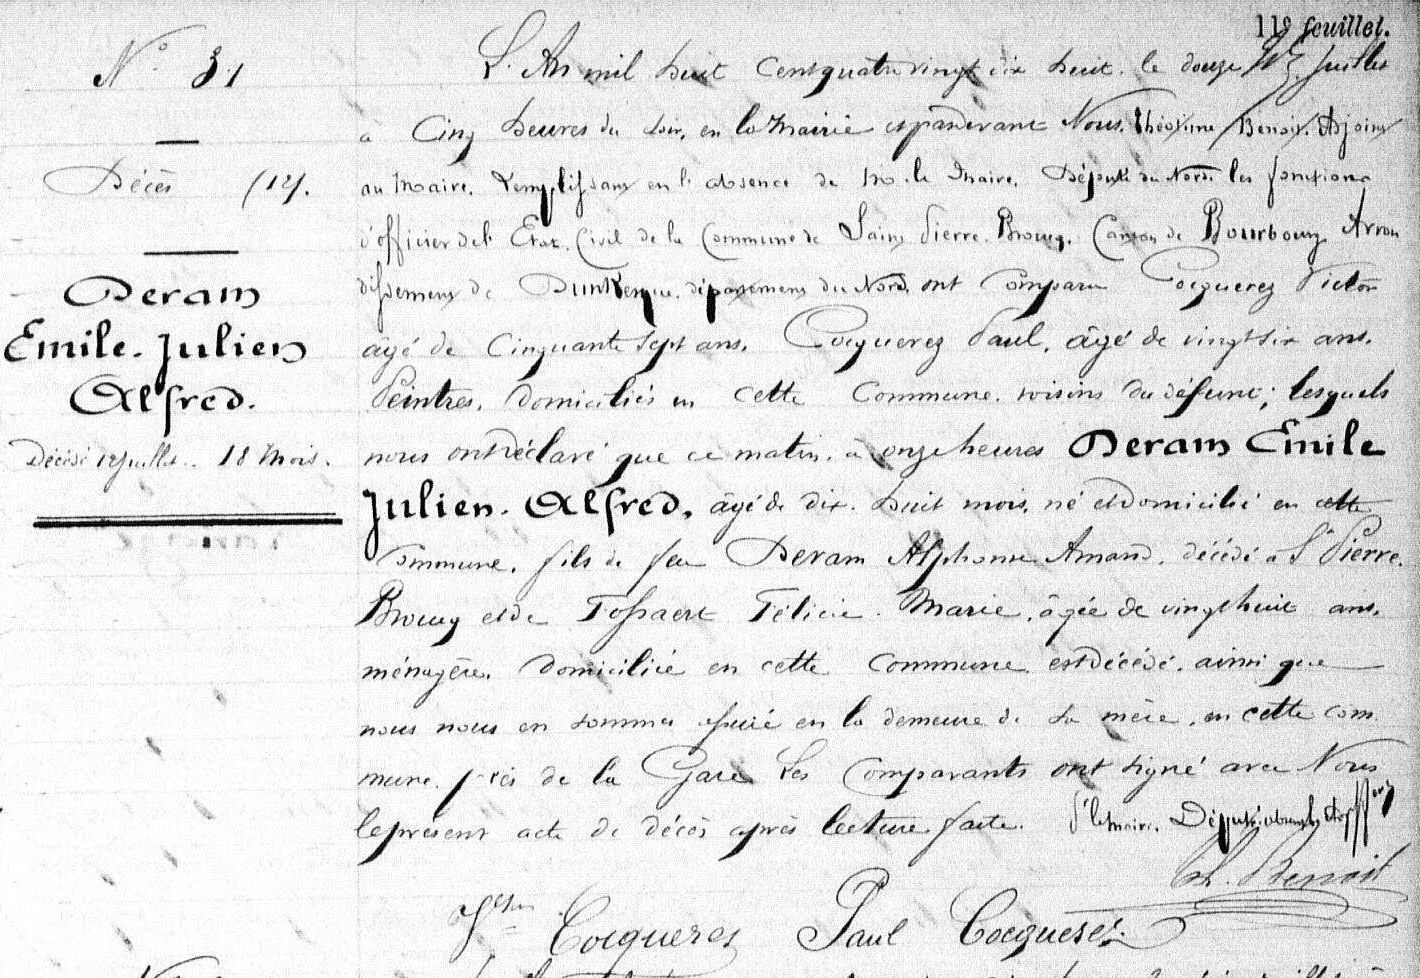 11e feuillet.
N° 31
Décès (12).
Deram
Emile. Julien
Alfred.
Décédé 12 Juillet. 18 Mois.
L'An mil huit cent quatre vingt dix huit. le douze Juillet
à Cinq heures du soir, en la Mairie et pardevant Nous. Théotime Benoit. Adjoint
au Maire. Remplissant en l'absence de M. le Maire. Député du Nord. les fonctions
d'officier de l'Etat. Civil de la Commune de Saint Pierre. Brouck. Canton de Bourbourg Arron
dissement de Dunkerque. département du Nord. ont Comparu Cocquerez Victor
âgé de Cinquante sept ans. Cocquerez Paul, âgé de vingt six ans.
Peintres. domiciliés en cette Commune. voisins du défunt; lesquels
nous ont déclaré que ce matin. à onze heures Deram Emile
Julien. Alfred, âgé de dix. huit mois, né et domicilié en cette
Commune. fils de feu Deram Alphonse Amand. décédé à St Pierre.
Brouck et de Fossaert Félicie. Marie. âgée de vingt huit ans.
ménagère. domiciliée en cette commune est décédé. ainsi que
nous nous en sommes assuré en la demeure de sa mère. en cette com
mune. près de la Gare Les Comparants ont signé avec Nous
le présent acte de décès après lecture faite. P. le Maire. Député. absent
Th. Benoit
Vctor Cocquerez Paul Cocquerez